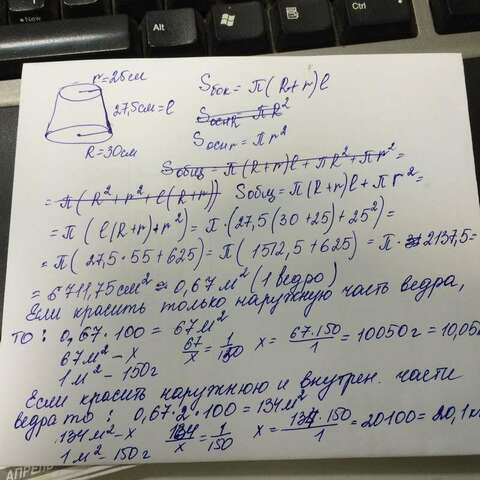 r=25см
27,5см=l
R=30см
Sбок=π(R+r)l
Sосн R πR²
Sосн r=πr²
Sобщ=π(R+r)l+πR²+πr²=
=π(R²+r²+l(R+r)) Sобщ=π(R+r)l+πr²=
=π(l(R+r)+r²)=π·(27,5(30+25)+25²)=
=π(27,5·55+625)=π(1512,5+625)=π·2137,5=
=6711,75см²≈0,67м² (1 ведро)
Если красить только наружную часть ведра,
то: 0,67·100=67м²
67м²-x 67/x=1/150 x=67·150/1=10050г=10,05
1м²-150г
Если красить наружнюю и внутрен. части
ведра то: 0,67·2·100=134м²
134м²-x 134/x=1/150 x=134·150/1=20100=20,1к
1м²-150г
Alt
АПРЕЛ